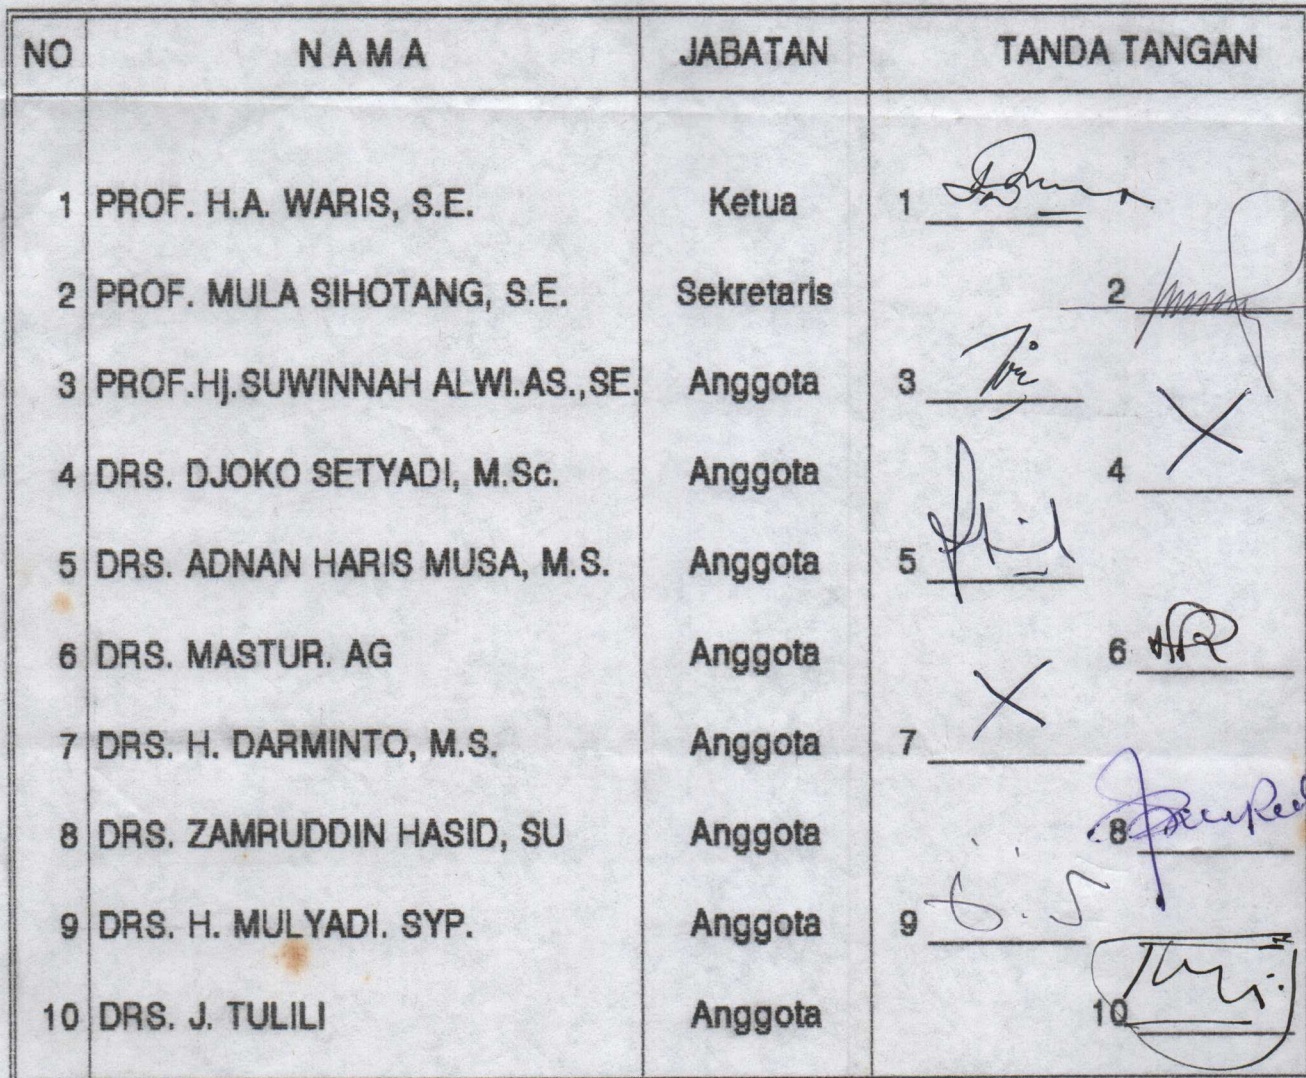 NO NAMA JABATAN TANDA TANGAN
1 PROF. H.A. WARIS, S.E. Ketua 1
2 PROF. MULA SIHOTANG, S.E. Sekretaris 2
3 PROF.Hj.SUWINNAH ALWI.AS.,SE. Anggota 3
4 DRS. DJOKO SETYADI, M.Sc. Anggota 4
5 DRS. ADNAN HARIS MUSA, M.S. Anggota 5
6 DRS. MASTUR. AG Anggota 6
7 DRS. H. DARMINTO, M.S. Anggota 7
8 DRS. ZAMRUDDIN HASID, SU Anggota 8
9 DRS. H. MULYADI. SYP. Anggota 9
10 DRS. J. TULILI Anggota 10